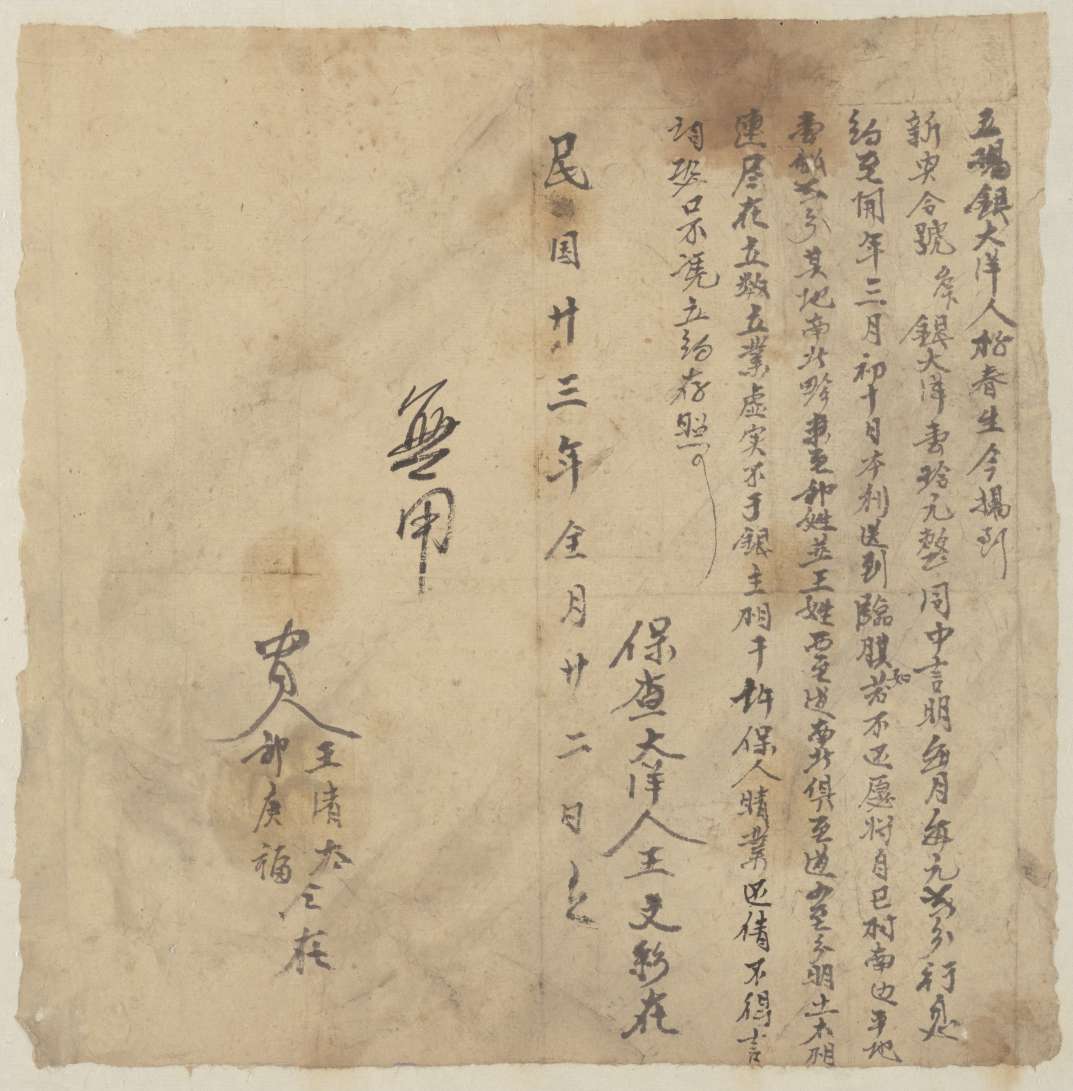 立揭銀大洋人杨春生今揭到
新興合號名下銀大洋壹拾元整同中言明每月每元公分行息
約至開年三月初十日本利送到臨期若如不还愿将自己村南边平地
壹段六分其地南北畛東至邰姓並王姓西至道南北俱至道四至分明土木相
連尽在立数立業虚实不于銀主相干許保人睛業还債不得言
詞恐口不凭立約存照
民国廿三年全月廿二日立
保查大洋人王文彩在
無用
中見人
王清太
邰庚福
仝在